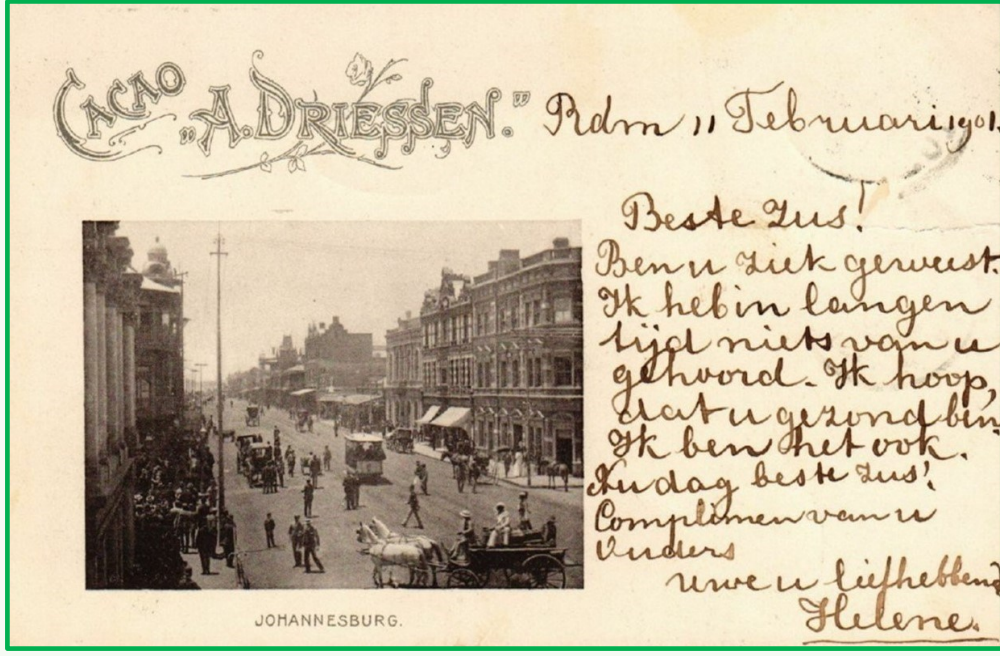 CACAO
„A. DRIESSEN."
Rdm 11 Februari 1901.
Beste Zus!
Ben u ziek geweest.
Ik heb in langen
tijd niets van u
gehoord. Ik hoop,
dat u gezond ben
Ik ben het ook.
Nu dag beste Zus!
Complimen van u
Ouders
uwe u liefhebbend
Helene.
JOHANNESBURG.